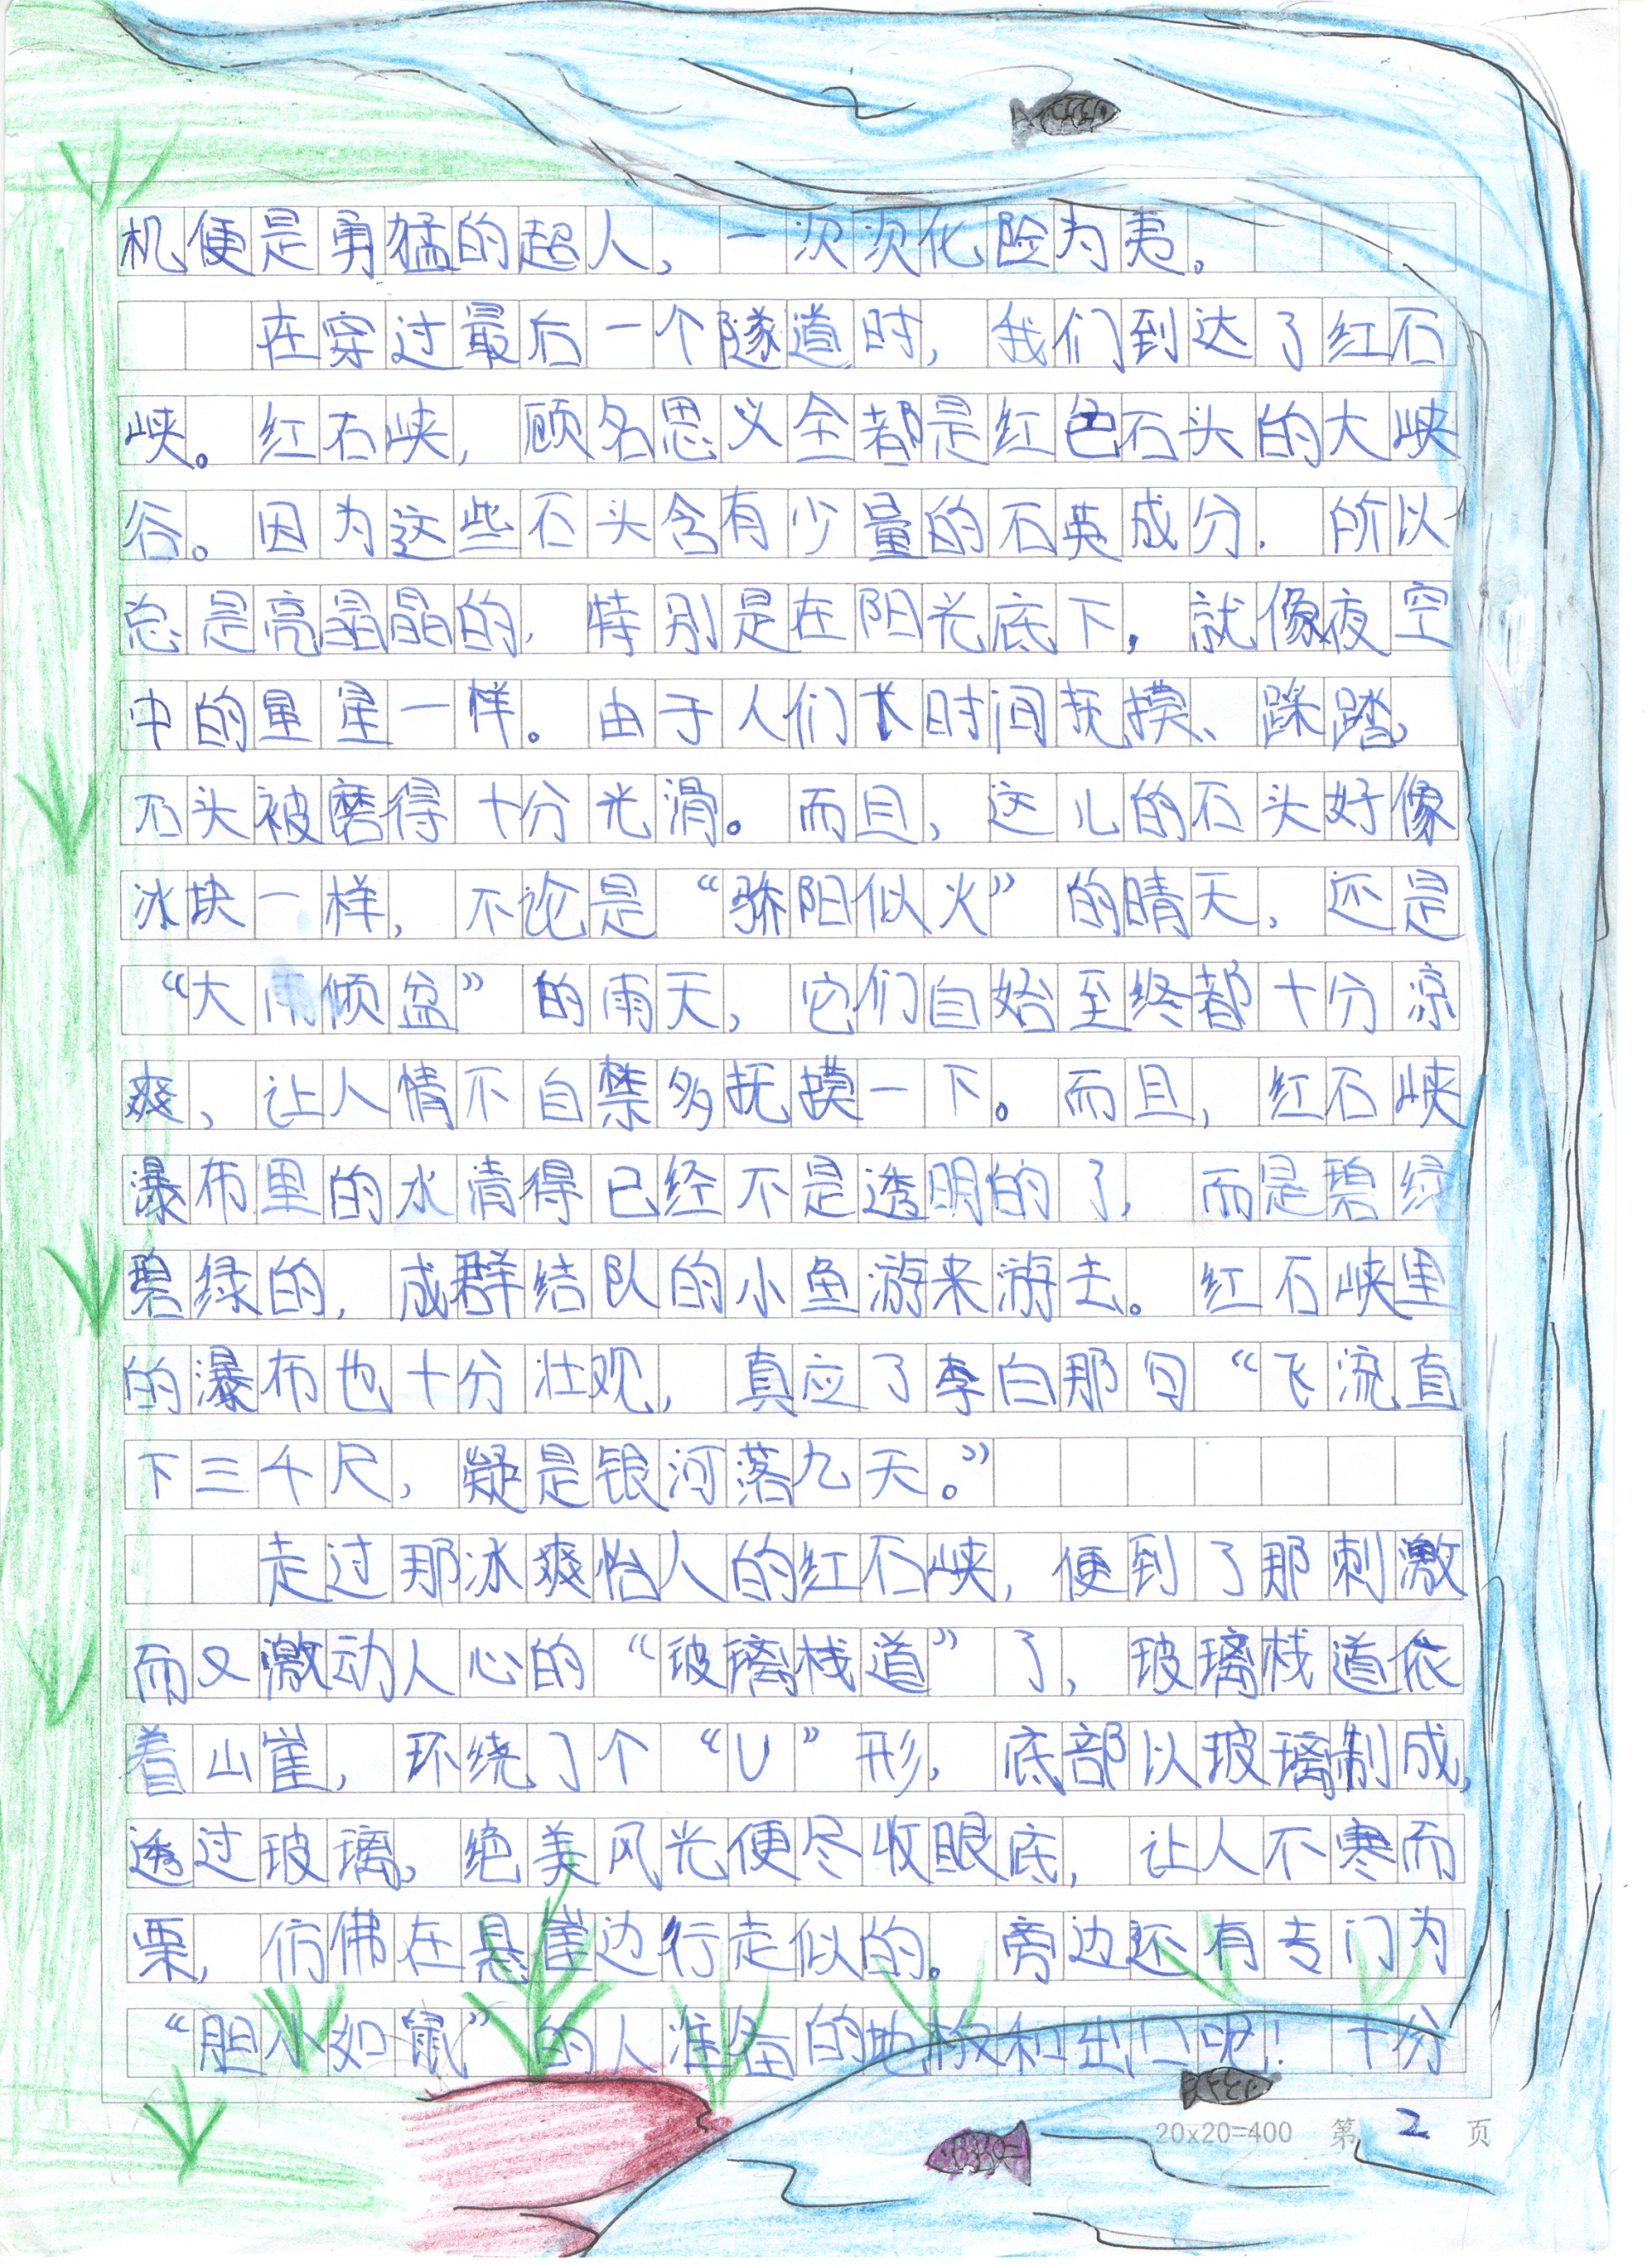 机便是勇猛的超人，一次次化险为夷。
在穿过最后一个隧道时，我们到达了红石
峡。红石峡，顾名思义全都是红色石头的大峡
谷。因为这些石头含有少量的石英成分，所以
总是亮晶晶的，特别是在阳光底下，就像夜空
中的星星一样。由于人们长时间抚摸、踩踏，
石头被磨得十分光滑。而且，这儿的石头好像
冰块一样，不论是“骄阳似火”的晴天，还是
“大雨倾盆”的雨天，它们自始至终都十分凉
爽，让人情不自禁多抚摸一下。而且，红石峡
瀑布里的水清得已经不是透明的了，而是碧绿
碧绿的，成群结队的小鱼游来游去。红石峡里
的瀑布也十分壮观，真应了李白那句“飞流直
下三千尺，疑是银河落九天。”
走过那冰爽怡人的红石峡，便到了那刺激
而又激动人心的“玻璃栈道”了，玻璃栈道依
着山崖，环绕了个“U”形，底部以玻璃制成，
透过玻璃，绝美风光便尽收眼底，让人不寒而
栗，仿佛在悬崖边行走似的。旁边还有专门为
“胆小如鼠”的人准备的地板和出口呢！十分
20x20=400 第 2 页